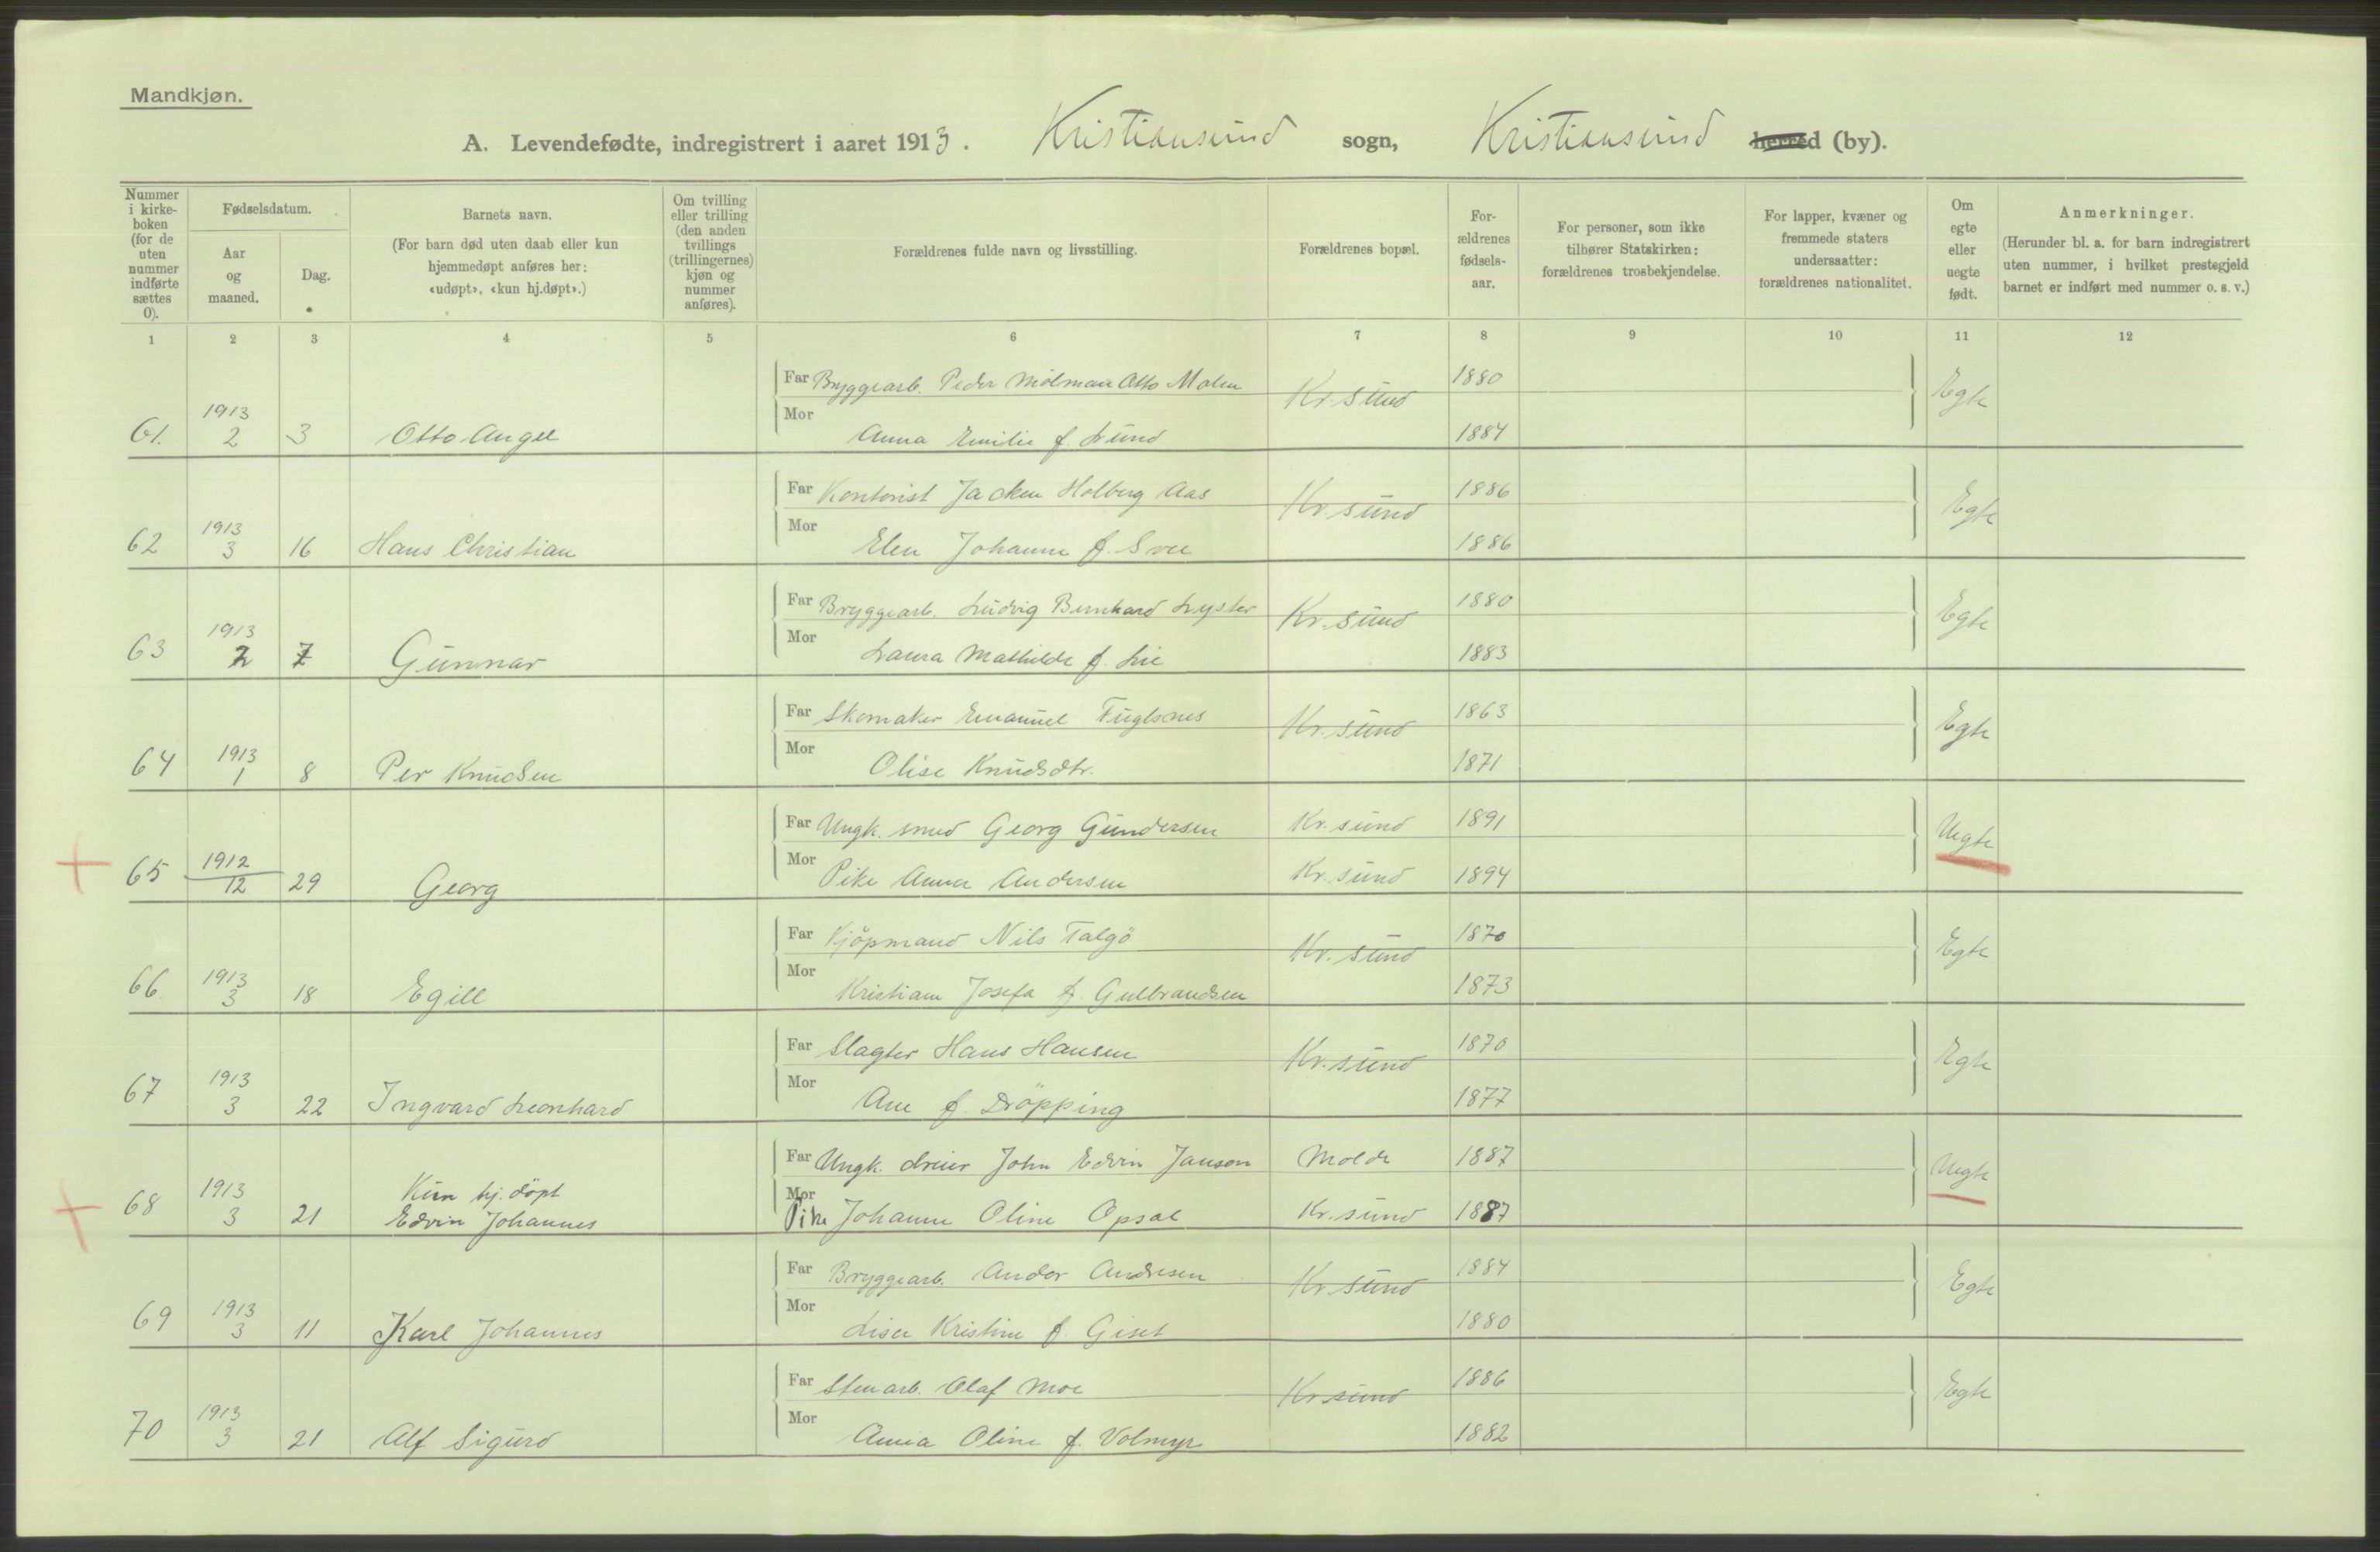 Mandkjøn.
A. Levendefødte, indregistrert i aaret 1913. Kristiansund sogn, Kristiansund herred (by).
Nummer i kirke-boken (for de uten nummer indførte sættes 0).
Fødselsdatum.
Aar og maaned.
Dag.
Barnets navn.
(For barn død uten daab eller kun hjemmedøpt anføres her: «udøpt», «kun hj.døpt».)
Om tvilling eller trilling (den anden tvillings (trillingernes) kjøn og nummer anføres).
Forældrenes fulde navn og livsstilling.
Forældrenes bopæl.
For-ældrenes fødsels-aar.
For personer, som ikke tilhører Statskirken: forældrenes trosbekjendelse.
For lapper, kvæner og fremmede staters undersaatter: forældrenes nationalitet.
Om egte eller uegte født.
Anmerkninger.
(Herunder bl. a. for barn indregistrert uten nummer, i hvilket prestegjeld barnet er indført med nummer o. s. v.)
1 2 3 4 5 6 7 8 9 10 11 12
Far Bryggearb. Peder Otto Molen Kr.sund 1880 Egte
61. 1913 2 3 Otto Angel
Mor Anna Emilie f. Lund 1884
Far Kontorist Jacken Holberg Aas Kr.sund 1886 Egte
62 1913 3 16 Hans Christian
Mor Elen Johanne f. Svee 1886
Far Bryggearb. Ludvig Bernhard Lyster Kr.sund 1880 Egte
63 1913 2 7 Gunnar
Mor Laura Mathilde f. Lie 1883
Far Skomaker Emanuel Fuglsnes Kr.sund 1863 Egte
64 1913 1 8 Per Knudsen
Mor Olise Knudsdtr. 1871
Far Ungk. smed Georg Gundersen Kr.sund 1891 Uegte
65 1912 12 29 Georg
Mor Pike Anna Andersen Kr.sund 1894
Far Kjöpmand Nils Talgö Kr.sund 1870 Egte
66 1913 3 18 Egill
Mor Kristiane Josefa f. Gulbrandsen 1873
Far Slagter Hans Hansen Kr.sund 1870 Egte
67 1913 3 22 Ingvard Leonhard
Mor Ane f. Dröpping 1877
Far Ungk. dreier John Edvin Janson Molde 1887 Uegte
68 1913 3 21 Kun hj. döpt
Edvin Johannes
Mor Pike Johanne Oline Opsal Kr.sund 1887
Far Bryggearb. Andor Andresen Kr.sund 1884 Egte
69 1913 3 11 Karl Johannes
Mor Lisa Kristine f. Giset 1880
Far Stenarb. Olaf Moe Kr.sund 1886 Egte
70 1913 3 21 Alf Sigurd
Mor Anna Oline f. Volmyr 1882